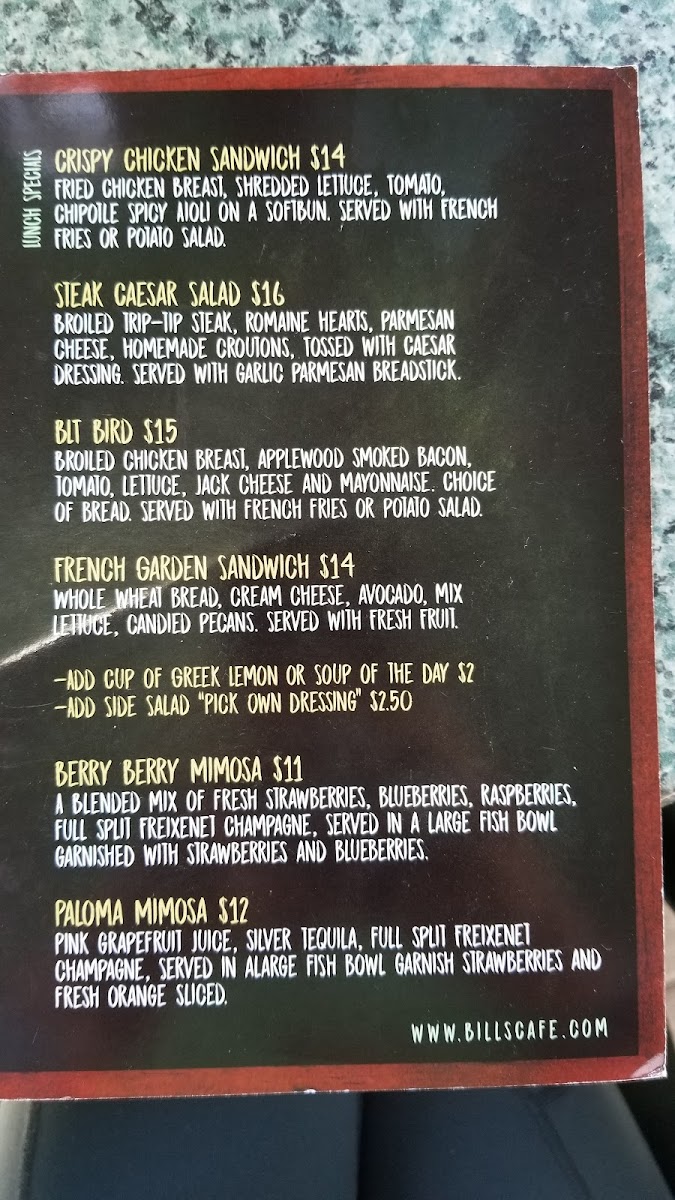 LUNCH SPECIALS
CRISPY CHICKEN SANDWICH $14
FRIED CHICKEN BREAST, SHREDDED LETTUCE, TOMATO,
CHIPOTLE SPICY AIOLI ON A SOFTBUN. SERVED WITH FRENCH
FRIES OR POTATO SALAD.
STEAK CAESAR SALAD $16
BROILED TRIP-TIP STEAK, ROMAINE HEARTS, PARMESAN
CHEESE, HOMEMADE CROUTONS, TOSSED WITH CAESAR
DRESSING. SERVED WITH GARLIC PARMESAN BREADSTICK.
BLT BIRD $15
BROILED CHICKEN BREAST, APPLEWOOD SMOKED BACON,
TOMATO, LETTUCE, JACK CHEESE AND MAYONNAISE. CHOICE
OF BREAD. SERVED WITH FRENCH FRIES OR POTATO SALAD.
FRENCH GARDEN SANDWICH $14
WHOLE WHEAT BREAD, CREAM CHEESE, AVOCADO, MIX
LETTUCE, CANDIED PECANS. SERVED WITH FRESH FRUIT.
-ADD CUP OF GREEK LEMON OR SOUP OF THE DAY $2
-ADD SIDE SALAD "PICK OWN DRESSING" $2.50
BERRY BERRY MIMOSA $11
A BLENDED MIX OF FRESH STRAWBERRIES, BLUEBERRIES, RASPBERRIES,
FULL SPLIT FREIXENET CHAMPAGNE, SERVED IN A LARGE FISH BOWL
GARNISHED WITH STRAWBERRIES AND BLUEBERRIES.
PALOMA MIMOSA $12
PINK GRAPEFRUIT JUICE, SILVER TEQUILA, FULL SPLIT FREIXENET
CHAMPAGNE, SERVED IN ALARGE FISH BOWL GARNISH STRAWBERRIES AND
FRESH ORANGE SLICED.
WWW.BILLSCAFE.COM